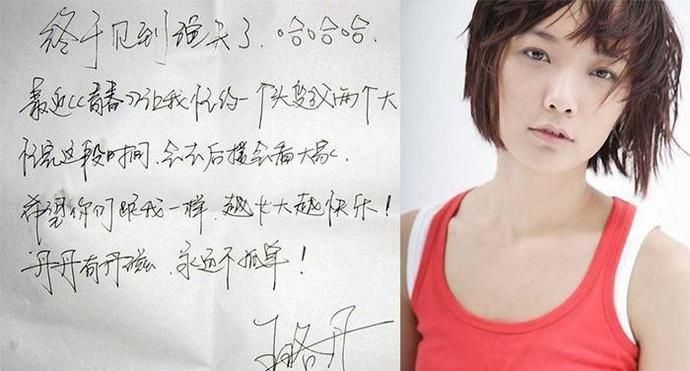 终于见到 头了.哈哈哈.
最近《青春》让我忙 一个头变 两个大
忙完这段时间.会去后援会看大家.
希望你们跟我一样.越长大越快乐!
丹丹有丹磁.永远不孤单!
王珞丹